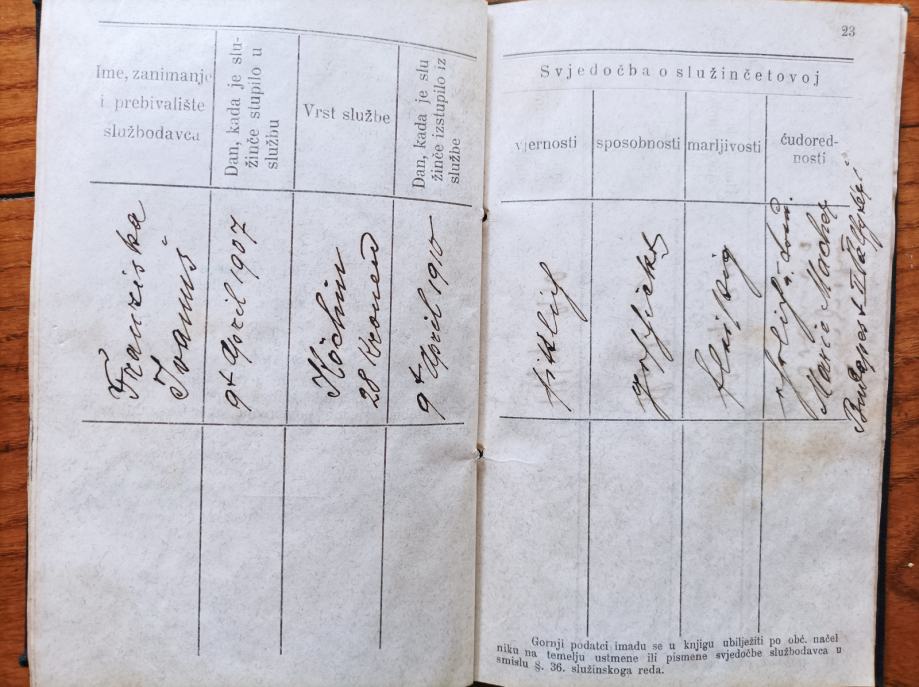 Ime, zanimanje
i prebivalište
službodavca
Dan, kada je slu-
žinče stupilo u
službu
Vrst službe
Dan, kada je slu
žinče izstupilo iz
službe
Franziska
Ivanuš
9t April 1907
Köchin
28 Kronen
9t April 1910
23
Svjedočba o služinčetovoj
vjernosti
sposobnosti
marljivosti
ćudored-
nosti
fleißig
Marie
Budapest II
Gornji podatci imadu se u knjigu ubilježiti po obć. načel
niku na temelju ustmene ili pismene svjedočbe službodavca u
smislu §. 36. služinskoga reda.